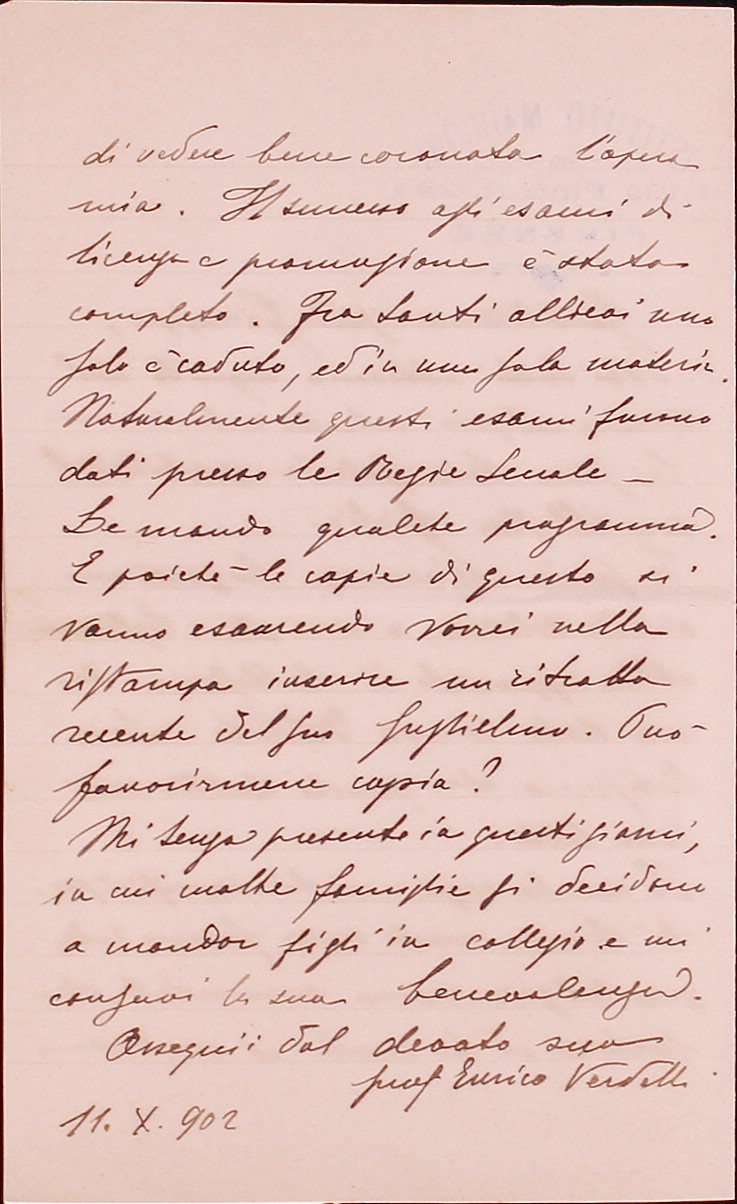 di vedere bene coronata l'opera
mia. Il successo agli esami di
licenza e promozione è stato
completo. Fra tanti allievi uno
solo è caduto, ed in una sola materia.
Naturalmente questi esami furono
dati presso le Regie Scuole –
Le mando qualche programma.
E poichè le copie di questo si
vanno esaurendo vorrei nella
ristampa inserire un ritratto
recente del suo Guglielmo. Può
favorirmene copia?
Mi tenga presente in questi giorni,
in cui molte famiglie si decidono
a mandar figli in collegio e mi
conservi la sua benevolenza.
Ossequii dal devoto suo
prof Enrico Verdelli
11. X. 902